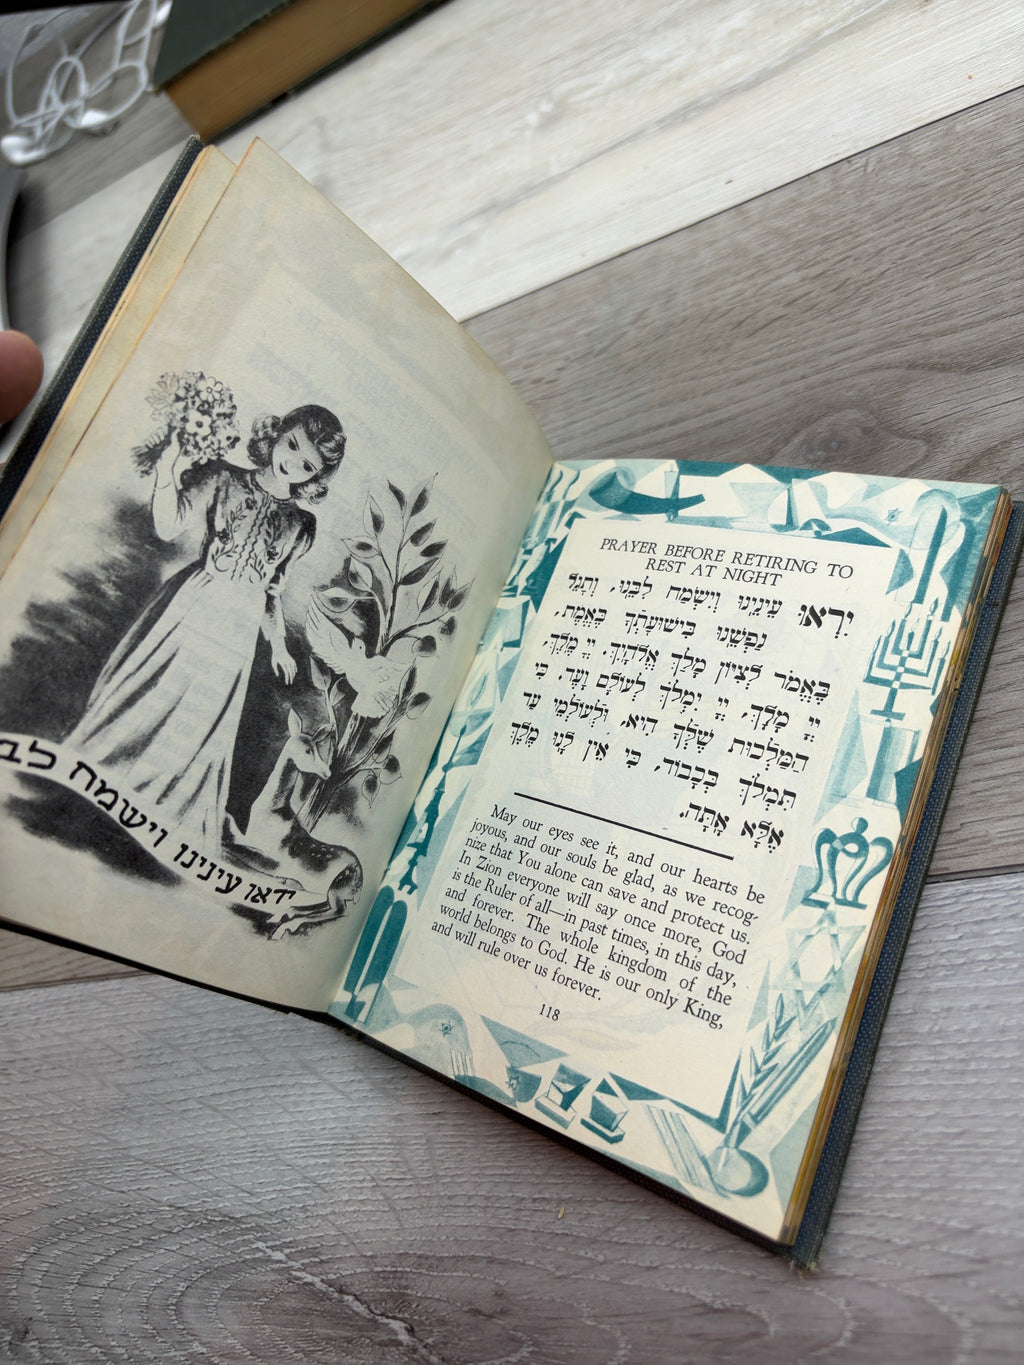 יראו עינינו וישמח לב
PRAYER BEFORE RETIRING TO
REST AT NIGHT
יִרְאוּ עֵינֵינוּ וְיִשְׂמַח לִבֵּנוּ, וְתָגֵל
נַפְשֵׁנוּ בִּישׁוּעָתְךָ בֶּאֱמֶת,
בֶּאֱמֹר לְצִיּוֹן מָלַךְ אֱלֹהָיִךְ. יְיָ מֶלֶךְ,
יְיָ מָלָךְ, יְיָ יִמְלֹךְ לְעוֹלָם וָעֶד. כִּי
הַמַּלְכוּת שֶׁלְּךָ הִיא, וּלְעוֹלְמֵי עַד
תִּמְלֹךְ בְּכָבוֹד, כִּי אֵין לָנוּ מֶלֶךְ
אֶלָּא אָתָּה.
May our eyes see it, and our hearts be
joyous, and our souls be glad, as we recog-
nize that You alone can save and protect us.
In Zion everyone will say once more, God
is the Ruler of all—in past times, in this day,
and forever. The whole kingdom of the
world belongs to God. He is our only King,
and will rule over us forever.
118